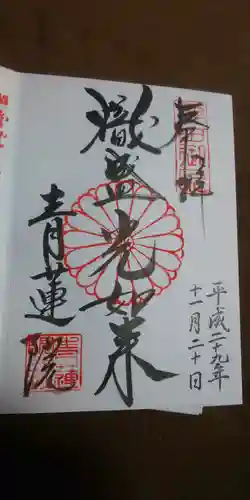 奉拝
熾盛光如来
青蓮院
平成二十九年
十一月二十日